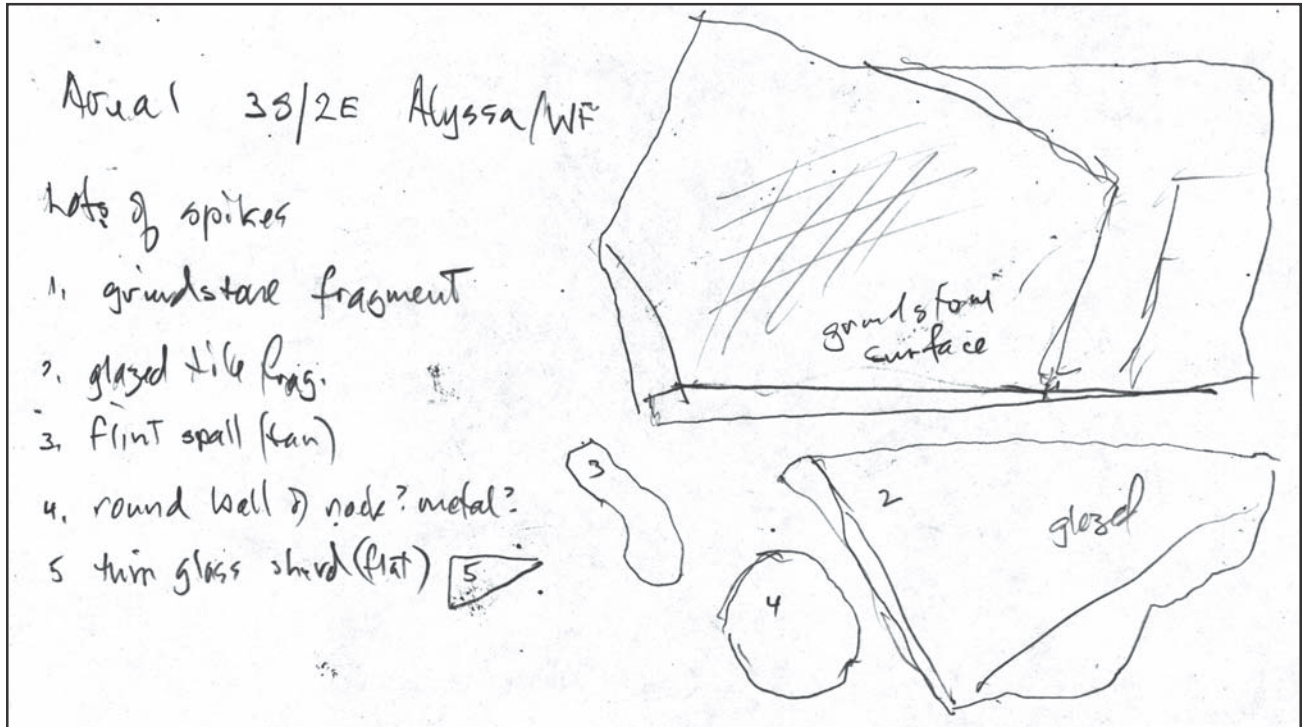 3S/2E Alyssa/WF
Lots of spikes
1. grindstone fragment
2. glazed tile frag.
3. flint spall (tan)
4. round ball of rock? metal?
5 thin glass sherd (flat) 5
grindstone
surface
3
2
glazed
4